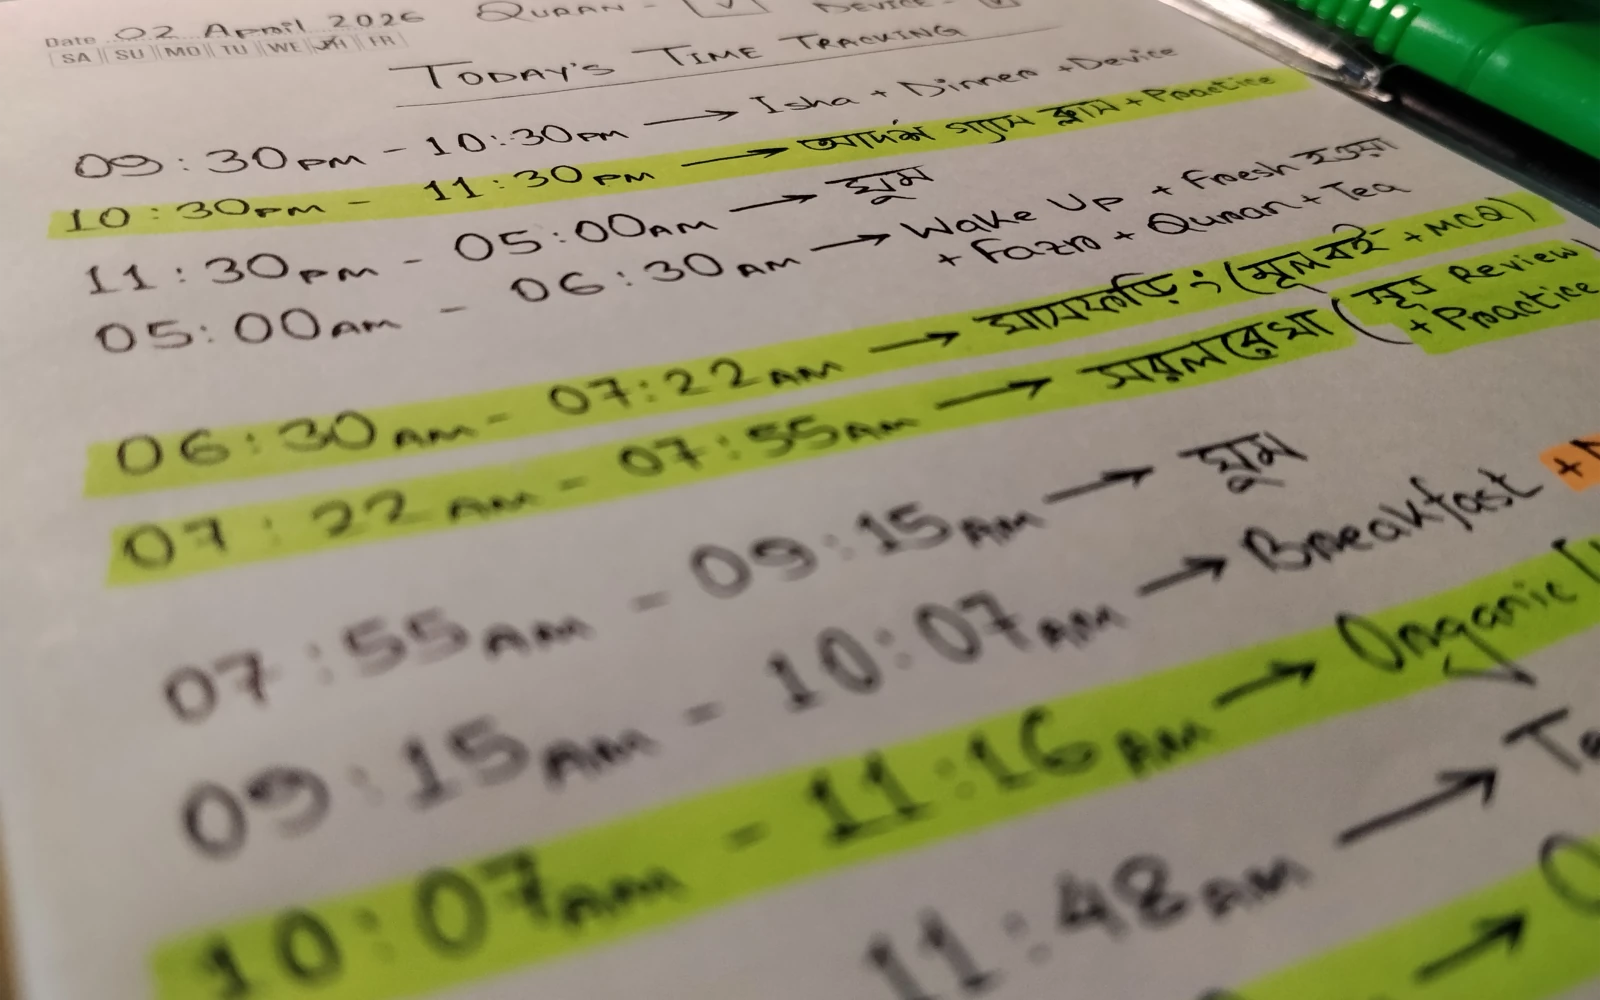 Date 02 April 2026 QURAN - DEVICE -
SA SU MO TU WE TH FR
TODAY'S TIME TRACKING
09:30PM - 10:30PM → Isha + Dinner + Device
10:30PM - 11:30PM → আদর্শ গ্যাস ক্লাস + Practice
11:30PM - 05:00AM → ঘুম
05:00AM - 06:30AM → Wake Up + Fresh হওয়া
+ Fazr + Quran + Tea
06:30AM - 07:22AM → ঘাসফড়িং (মূল বই + MCQ)
07:22AM - 07:55AM → সরলরেখা (সূত্র Review
+ Practice
07:55AM - 09:15AM → ঘুম
09:15AM - 10:07AM → Breakfast +
10:07AM - 11:16AM → Organic
11:48AM →